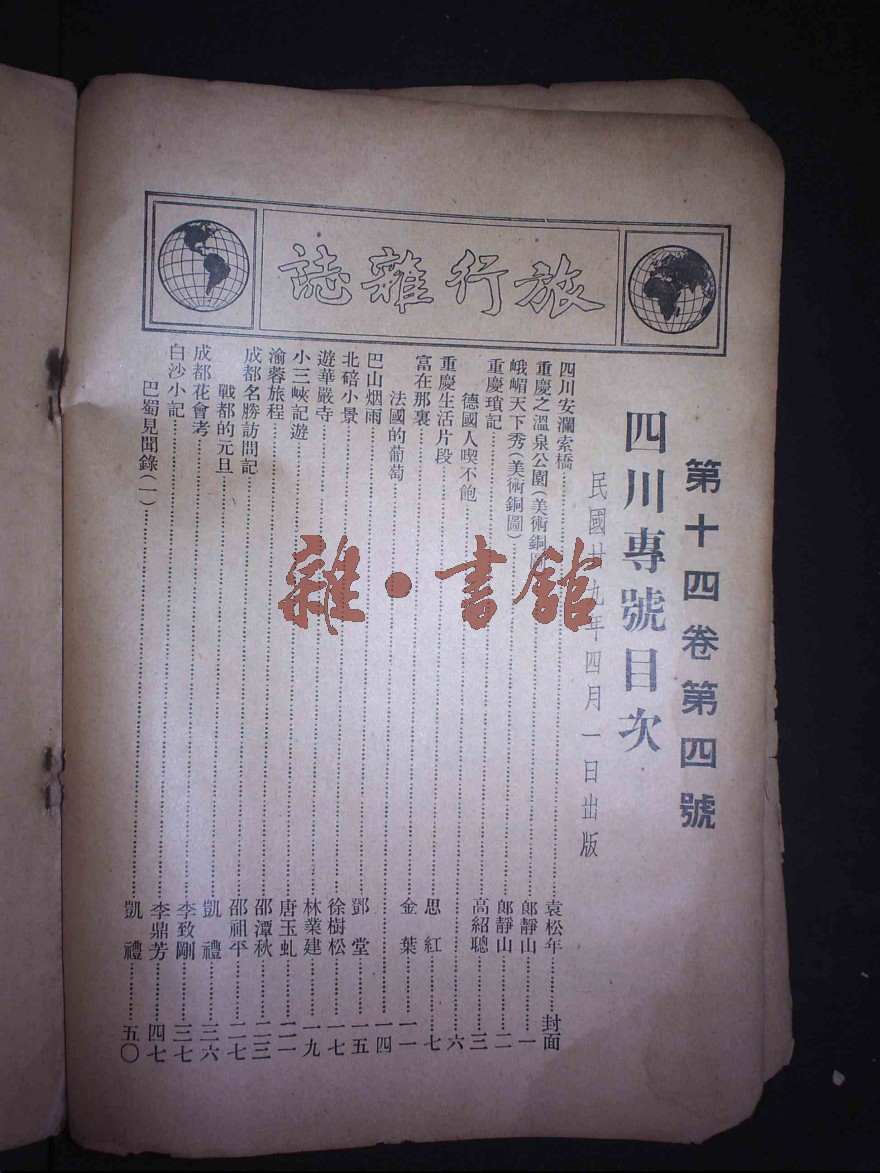 旅行雜誌
第十四卷第四號
四川專號目次
民國廿九年四月一日出版
四川安瀾索橋……袁松年……封面
重慶之溫泉公園(美術銅圖)……郎靜山……一
峨嵋天下秀(美術銅圖)……郎靜山……二
重慶瑣記……高紹聰……三
德國人喫不飽……六
重慶生活片段……思紅……七
富在那裏……金葉……一一
法國的葡萄……一四
巴山烟雨……鄧堂……一五
北碚小景……徐樹松……一七
遊華嚴寺……林業建……一九
小三峽記遊……唐玉虬……二一
渝蓉旅程……邵潭秋……二三
成都名勝訪問記……邵祖平……二七
戰都的元旦……凱禮……三六
成都花會考……李致剛……三七
白沙小記……李鼎芳……四七
巴蜀見聞錄(一)……凱禮……五〇
雜·書館